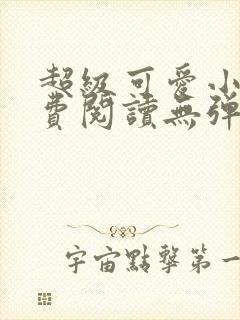 超級可愛小
費閱讀無彈
宇宙點擊第一